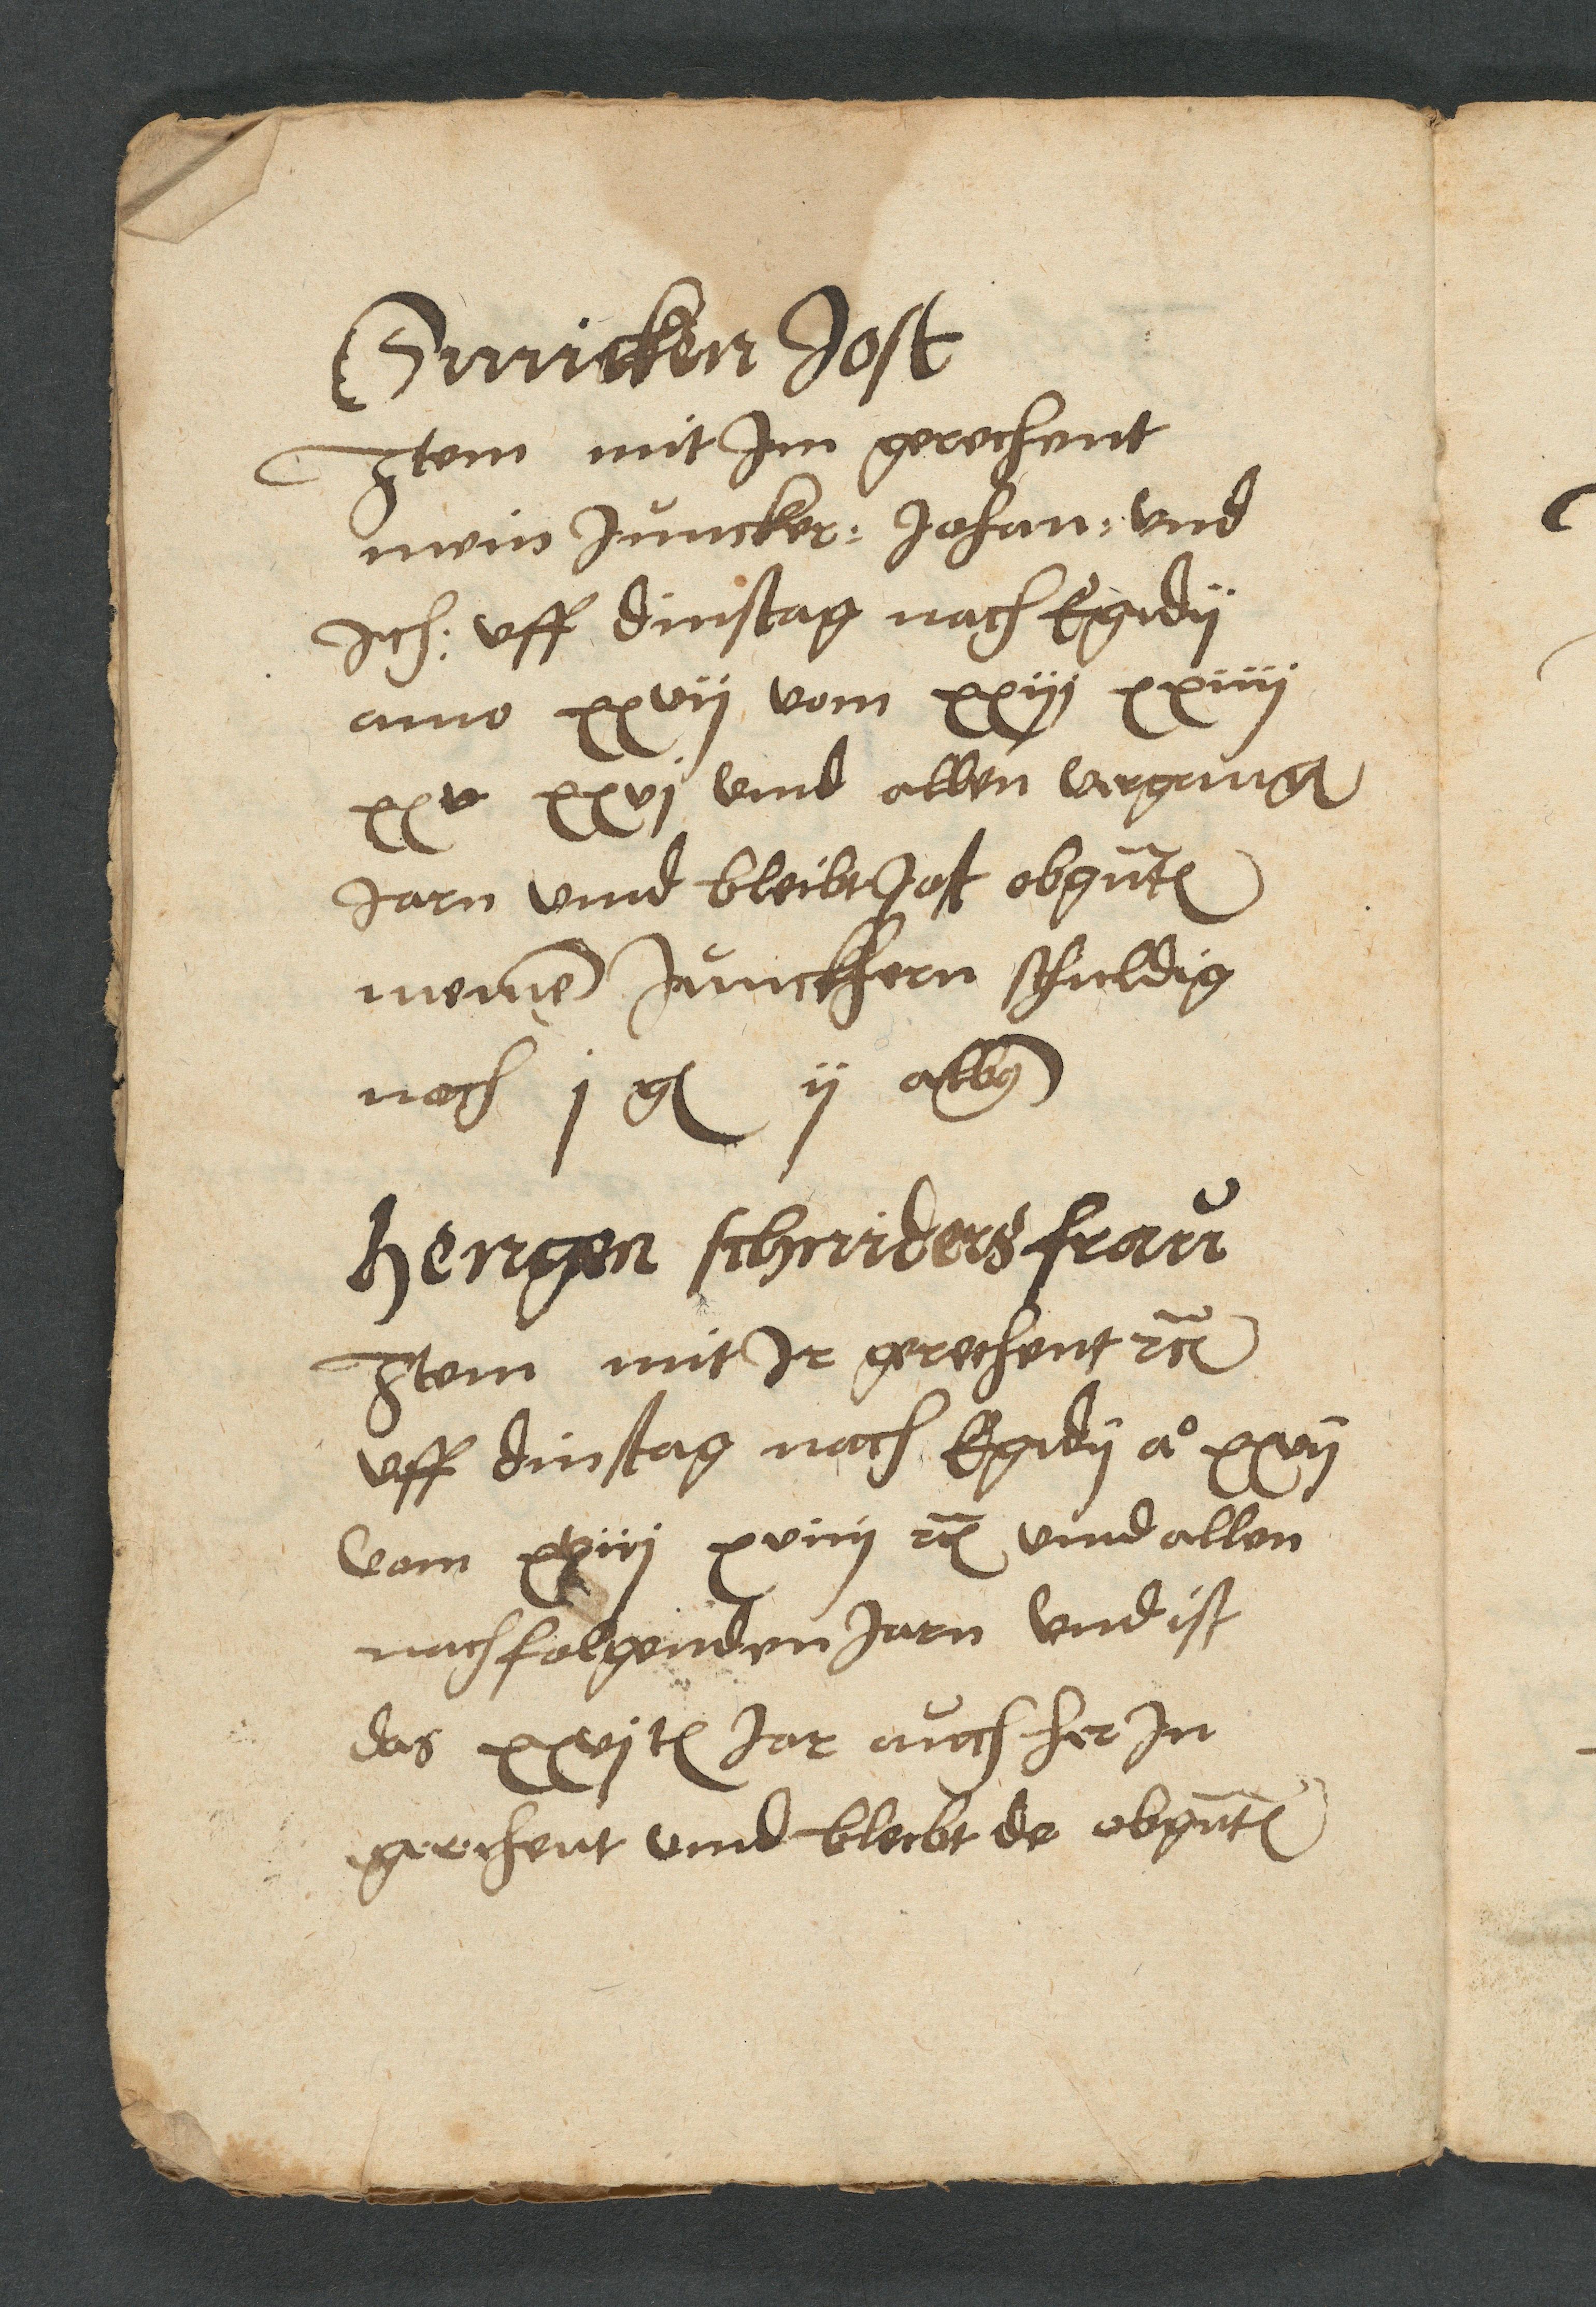 Smicken Jost
Item mit Im gerechent
mein Juncker: Johan: vnd
Ich: vff dinstag nach Egidij
anno xxvij vom xxiij xxiiij
xxv xxvj vnnd allen vergang
Jarn vnnd bleibt Jost obgnt
meine Junckhern schuldig
noch j g ij albg
Hengen schniders frau
Item mit Ir gerechent
vff dinstag nach Egidij ao xxvij
vom xviij xviiij vnnd allen
nachfolgenden Jarn vnd ist
das xxvjt Jar auch her In
gerechent vnnd bleibt de obgnt